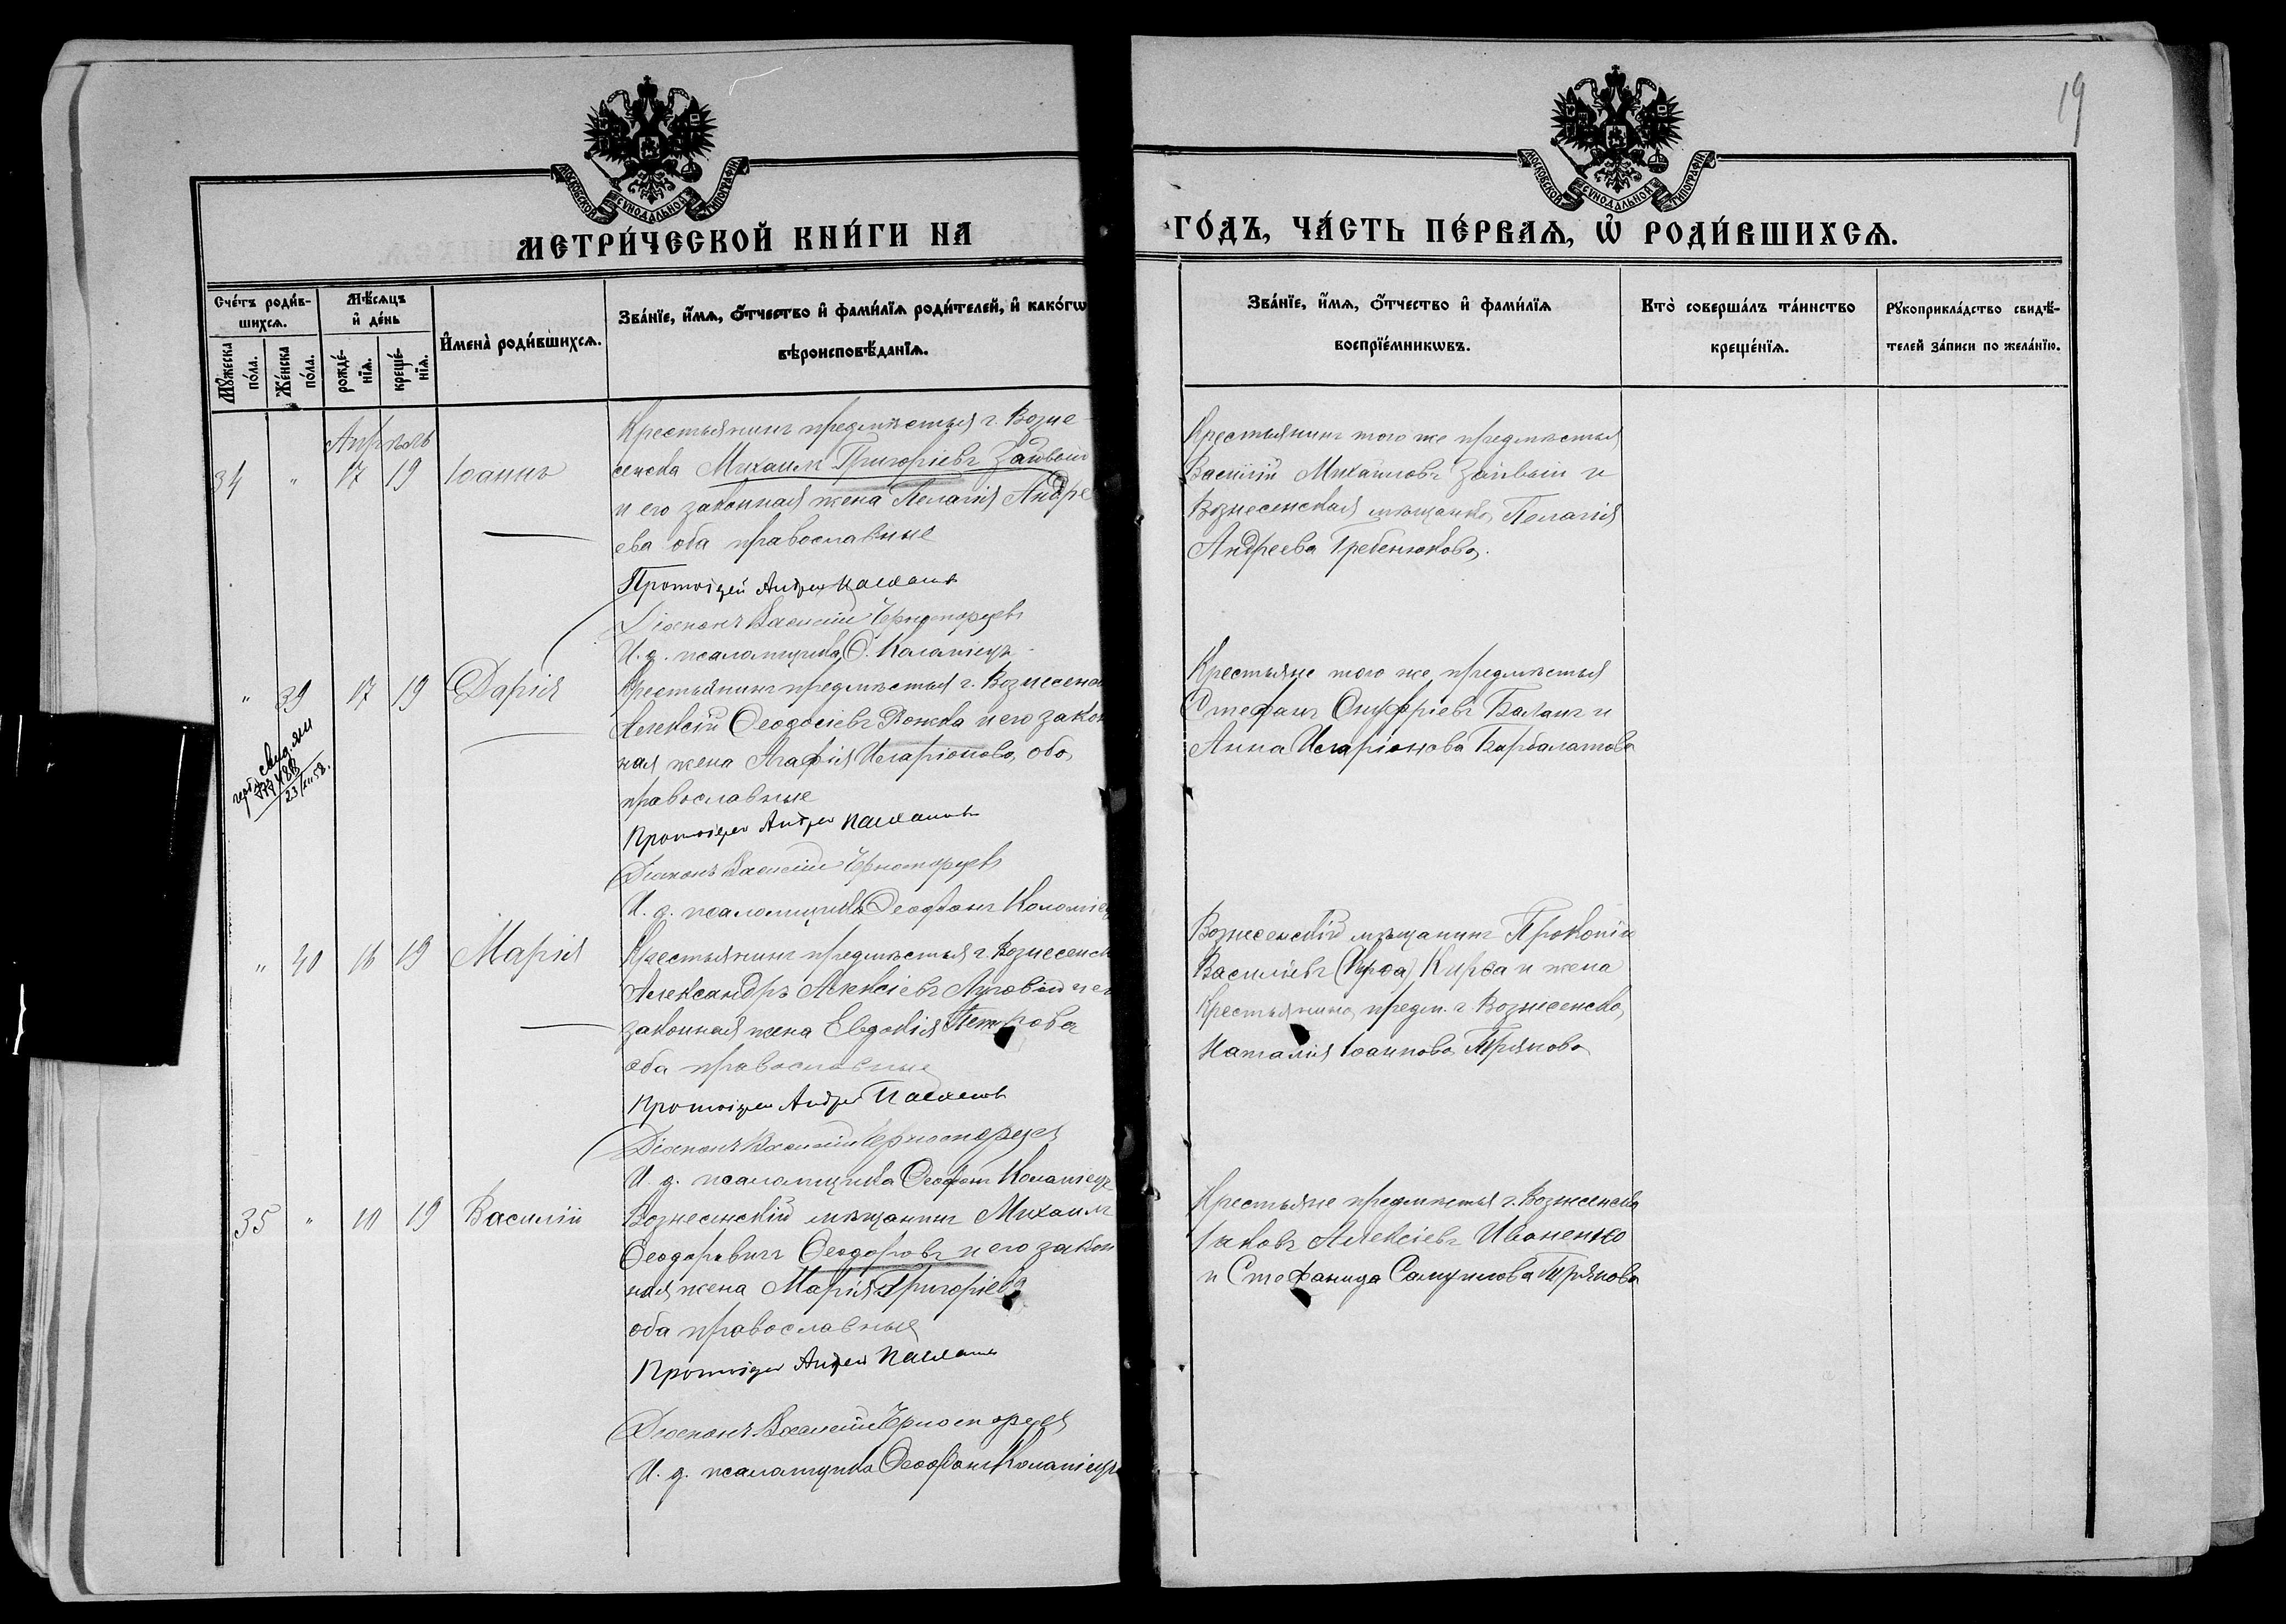 19
МОСКОВСКОЙ СУНОДАЛЬНОЙ ТИПОГРАФІИ
МОСКОВСКОЙ СУНОДАЛЬНОЙ ТИПОГРАФІИ
МЕТРИ́ЧЕСКОЙ КНИ́ГИ НА
ГО́ДЪ, ЧА́СТЬ ПЕ́РВАѦ, Ѡ҆ РОДИ́ВШИХСѦ.
Сче́тъ роди́в-
шихсѧ.
Мꙋ́жеска по́ла.
Же́нска по́ла.
Мѣ́сѧцъ
и҆ де́нь
рожде́-
нїѧ.
креще́-
нїѧ.
И҆мена̀ роди́вшихсѧ.
Зва́нїе, и҆́мѧ, ѻ҆́тчество и҆ фами́лїѧ роди́телей, и҆ како́гѡ
вѣроисповѣ́данїѧ.
Зва́нїе, и҆́мѧ, ѻ҆́тчество и҆ фами́лїѧ
воспрїе́мникѡвъ.
Кто̀ соверша́лъ та́инство
креще́нїѧ.
Рꙋкоприкла́дство свидѣ́-
телей за́писи по жела́нїю.
Апрѣль
34 " 17 19 Іоаннъ
Крестьянинъ предмѣстья г. Возне-
сенска Михаилъ Григоріевъ
и его законная жена Пелагія Андре
ева оба православные
Протоіерей Андрей
Діаконъ Василій Черноморцев
И. д. псаломщика Ѳ. Коломіецъ
Крестьянинъ того же предмѣстья
Василій Михаиловъ и
Вознесенская мѣщанка Пелагія
Андреева Гребенюкова.
" 39 17 19 Дарія
23/XII 58.
Крестьянинъ предмѣстья г. Вознесенс
Алексій Ѳеодосіевъ и его закон
ная жена Агафія Иларіонова, оба
православные
Протоіерей Андрей
Діаконъ Василій Черноморцев
И. д. псаломщика Ѳеофанъ Коломіец
Крестьяне того же предмѣстья
Стефанъ Онуфріевъ Баланъ и
Анна Иларіонова Барбалатова
" 40 16 19 Марія
Крестьянинъ предмѣстья г. Вознесенск
Александръ Алексіевъ Луговой и ег
законная жена Евдокія Петрова
оба православные
Протоіерей Андрей
Діаконъ Василій Черноморцев
И. д. псаломщика Ѳеофанъ Коломіецъ
Вознесенскій мѣщанинъ Прокопій
Василіевъ Кирса и жена
Крестьянина предм. г. Вознесенска
Наталія Іоаннова
35 " 10 19 Василій
Вознесенскій мѣщанинъ Михаилъ
Ѳеодоровичъ Ѳеодоровъ и его закон
ная жена Марія Григоріева
оба православные
Протоіерей Андрей
Діаконъ Василій Черноморцев
И. д. псаломщика Ѳеофанъ Коломіецъ
Крестьяне предмѣстья г. Вознесенска
Іаковъ Алексіевъ Иваненко
и Стефанида Самуилова